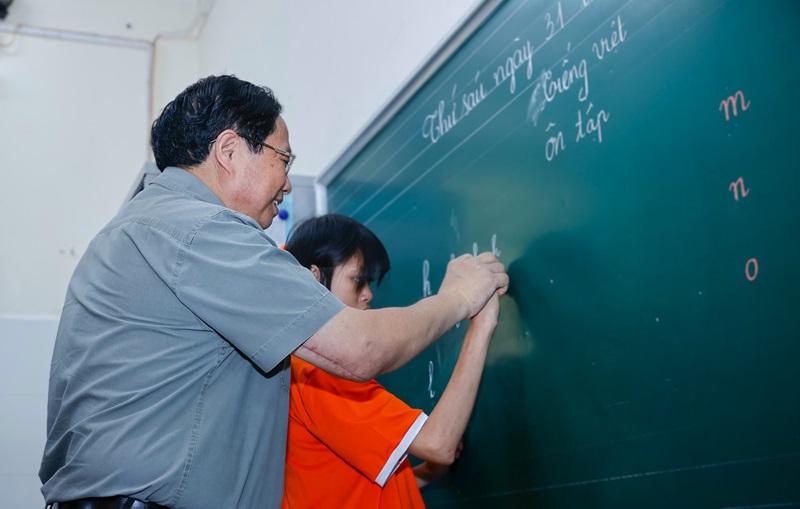 Thứ sáu ngày 31
Tiếng việt
ôn tấp
m
n
o
h
h
l